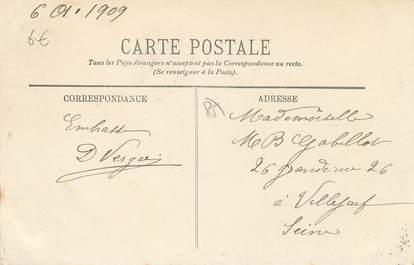 6 Ot. 1909
6€
CARTE POSTALE
Tous les Pays étrangers n'acceptent pas la Correspondance au recto.
(Se renseigner à la Poste)
CORRESPONDANCE
ADRESSE
Mademoiselle
M B Gobillot
26 grande rue 26
à Villejuif
Seine
D Verger